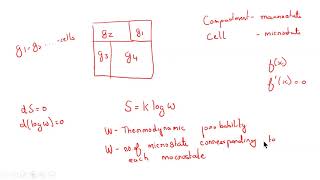 g₁, g₂ ..... cells
g₂ g₁
g₃ g₄
Compartment - macrostate
Cell - microstate
f(x)
f'(x) = 0
dS = 0
d(log w) = 0
S = k log w
W - Thermodynamic probability
W - no. of microstate corresponding to
each macrostate